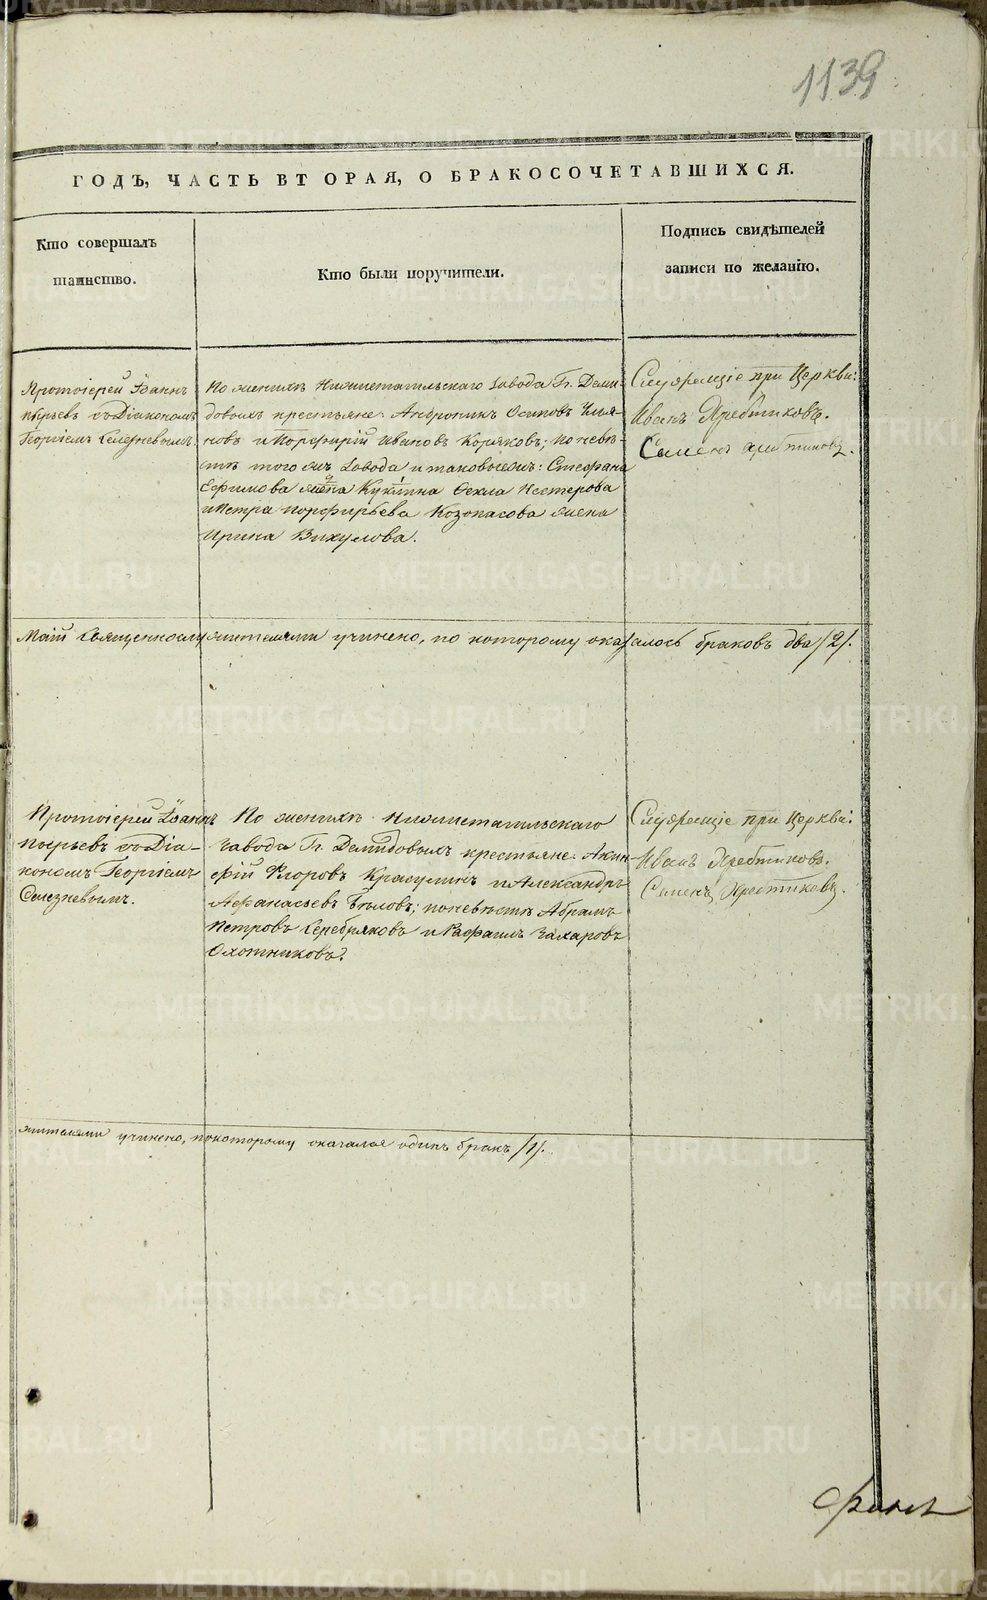 1139
ГОДЪ, ЧАСТЬ ВТОРАЯ, О БРАКОСОЧЕТАВШИХСЯ.
Кто совершалъ
таинство.
Кто были поручители.
Подпись свидѣтелей
записи по желанію.
Протоіерей Іоаннъ
Пырьевъ съ Діакономъ
Георгіемъ Селезневымъ.
По женихѣ Нижнетагильскаго завода Гг. Деми-
довыхъ крестьяне: Андроникъ Осиповъ
и Порфирій Ивановъ Коряковъ; по невѣ-
стѣ того жъ завода и таковыежъ: Стефана
Ефимова жена Кукина Фекла Нестерова
и Петра Порфирьева Козопасова жена
Ирина Викулова.
Служащіе при Церкви:
Иванъ Хребтиковъ.
Семенъ Хребтиковъ.
Священнослужителями учинено, по которому оказалось браковъ два /2/.
Протоіерей Іоаннъ
Пырьевъ съ Діа-
кономъ Георгіемъ
Селезневымъ.
По женихѣ Нижнетагильскаго
завода Гг. Демидовыхъ крестьяне: Акин-
фій Флоровъ Красулинъ и Александръ
Афанасьевъ Бѣловъ; по невѣстѣ Абрамъ
Петровъ Серебряковъ и Рафаилъ Захаровъ
Охотниковъ.
Служащіе при Церкви:
Иванъ Хребтиковъ.
Семенъ Хребтиковъ.
жителями учинено, по которому оказался одинъ бракъ /1/.
METRIKI.GASO-URAL.RU